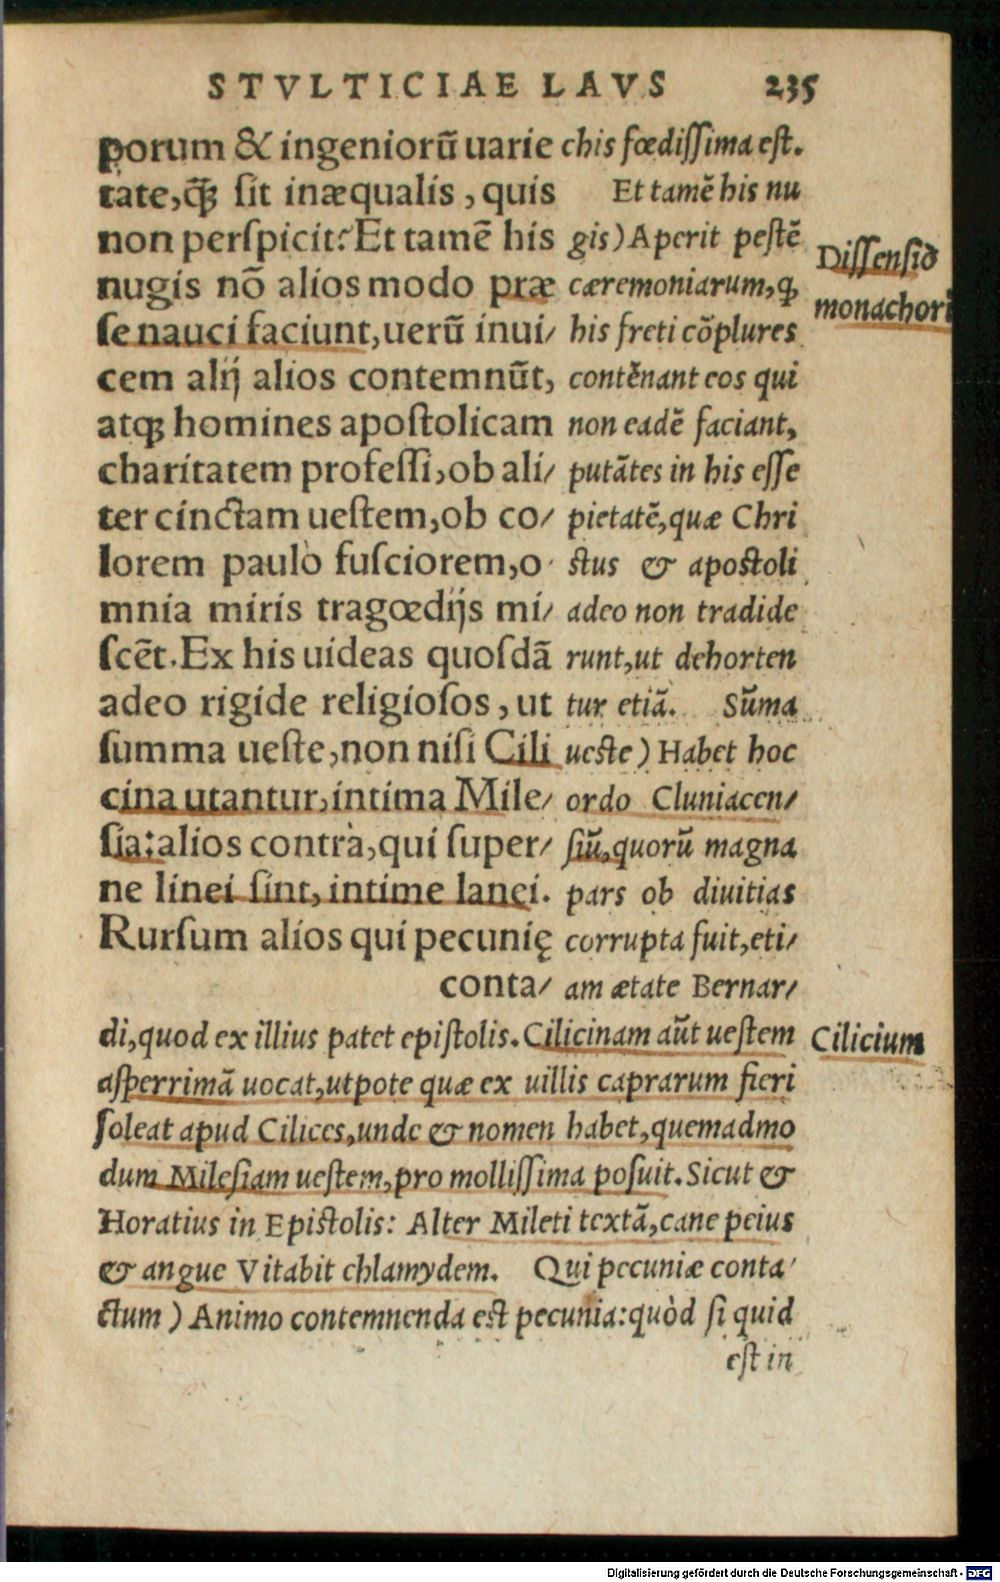 STVLTICIAE LAVS 235
porum & ingeniorũ uarie
tate, q̃ꝫ sit inæqualis, quis
non perspicit? Et tamẽ his
nugis nõ alios modo præ
se nauci faciunt, uerũ inui/
cem alij alios contemnũt,
atqꝫ homines apostolicam
charitatem professi, ob ali/
ter cinctam uestem, ob co/
lorem paulò fusciorem, o
mnia miris tragœdijs mi/
scẽt. Ex his uideas quosdã
adeo rigide religiosos, ut
summa ueste, non nisi Cili
cina utantur, intima Mile/
sia: alios contrà, qui super/
ne linei sint, intime lanei.
Rursum alios qui pecunię
conta/
chis fœdissima est.
Et tamẽ his nu
gis) Aperit pestẽ
cæremoniarum, qꝫ
his freti cõplures
contẽnant eos qui
non eadẽ faciant,
putãtes in his esse
pietatẽ, quæ Chri
stus & apostoli
adeo non tradide
runt, ut dehorten
tur etiã. Sũma
ueste) Habet hoc
ordo Cluniacen/
siũ, quorũ magna
pars ob diuitias
corrupta fuit, eti/
am ætate Bernar/
di, quod ex illius patet epistolis. Cilicinam aũt uestem
asperrimã uocat, utpote quæ ex uillis caprarum fieri
soleat apud Cilices, unde & nomen habet, quemadmo
dum Milesiam uestem, pro mollissima posuit. Sicut &
Horatius in Epistolis: Alter Mileti textã, cane peius
& angue Vitabit chlamydem. Qui pecuniæ conta
ctum) Animo contemnenda est pecunia: quòd si quid
est in
Dissensio
monachorũ
Cilicium
Digitalisierung gefördert durch die Deutsche Forschungsgemeinschaft - DFG